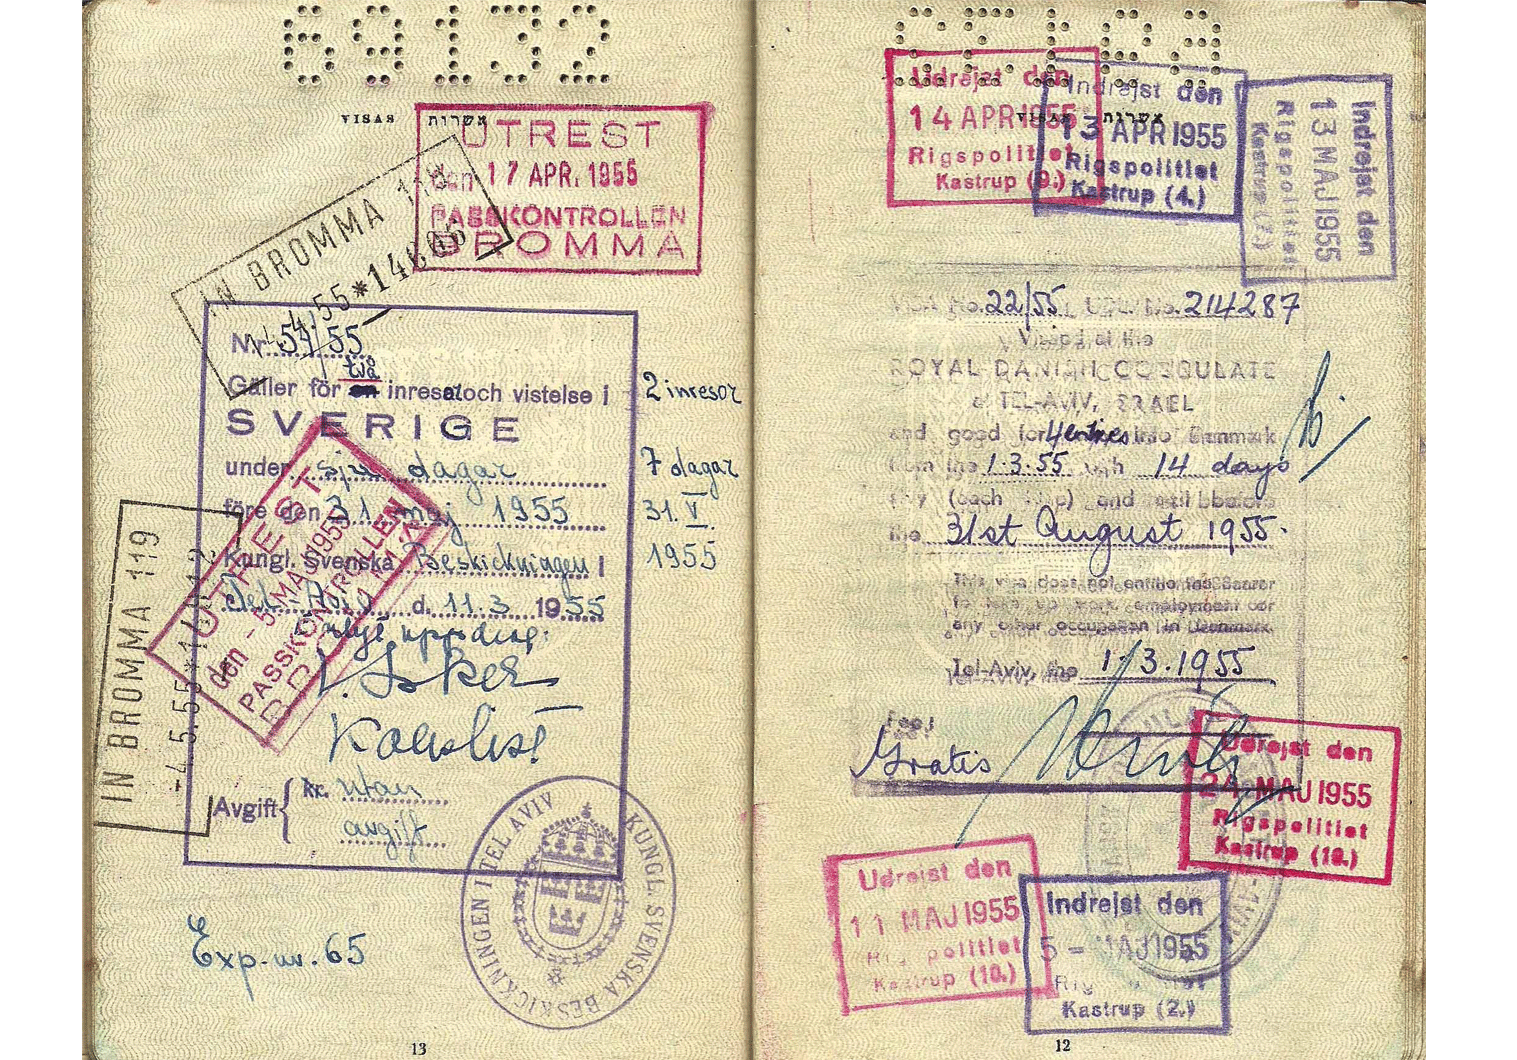 69132
VISAS אשרות
UTREST
den 17 APR. 1955
PASSKONTROLLEN
BROMMA
IN BROMMA 118
Nr. 54/55
två
Gäller för en inresor och vistelse i
SVERIGE
under sju dagar
före den 31 maj 1955
Kungl. Svenska Beskickningen i
Tel Aviv d. 11.3 1955
Enligt uppdrag:
Kanslist
Avgift { kr. utan
avgift
2 inresor
7 dagar
31. V.
1955
UTREST
den - 5 MAJ 1955
PASSKONTROLLEN
BROMMA
IN BROMMA 119
-4.5.55*
KUNGL. SVENSKA BESKICKNINGEN I TEL AVIV
Exp. nr. 65
13
VISAS אשרות
Udrejst den
14 APR 1955
Rigspolitiet
Kastrup (9.)
Indrejst den
13 APR 1955
Rigspolitiet
Kastrup (4.)
Indrejst den
13 MAJ 1955
Rigspolitiet
Kastrup
VISA No. 22/55 No. 214287
Visaed at the
ROYAL DANISH CONSULATE
at TEL-AVIV, ISRAEL
and good for 4 entries into Denmark
from the 1.3.55 with 14 days
stay (each trip) and until before
the 31st August 1955.
This visa does not entitle the bearer
to take up work, employment or
any other occupation in Denmark.
Tel-Aviv, the 1/3.1955
Fee:
Gratis
Udrejst den
24. MAJ 1955
Rigspolitiet
Kastrup (10.)
Udrejst den
11 MAJ 1955
Rigspolitiet
Kastrup (10.)
Indrejst den
5 - MAJ 1955
Rigspolitiet
Kastrup (2.)
12